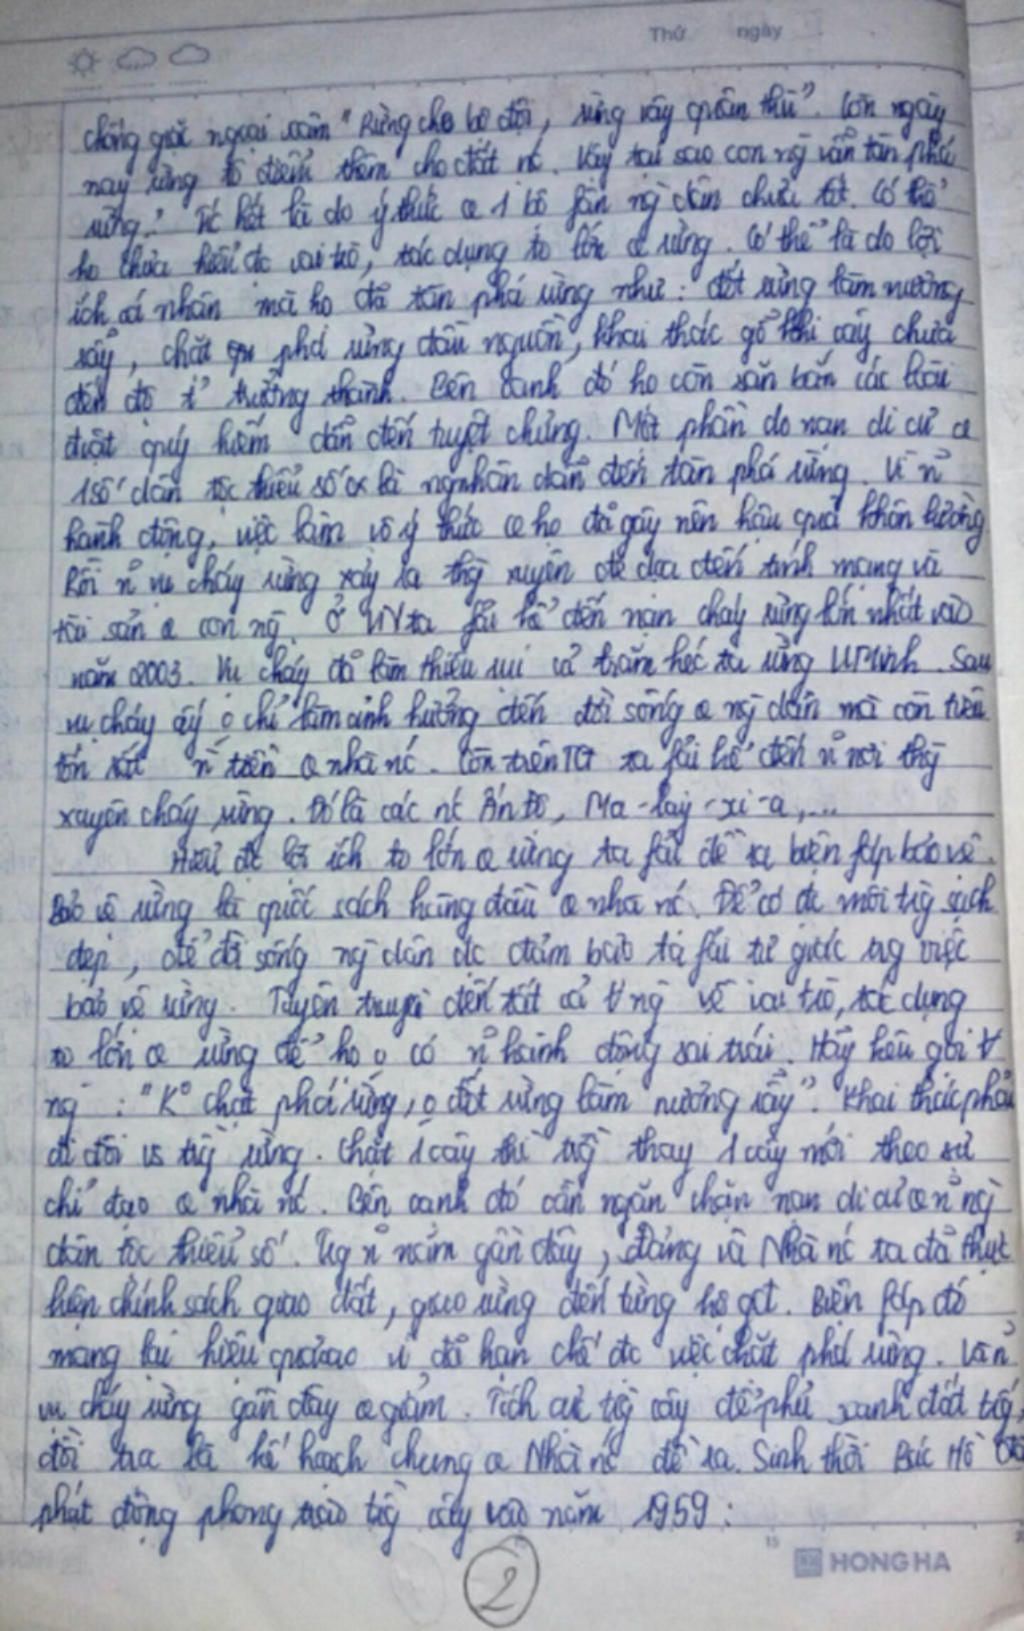 Thứ ngày
chống giặc ngoại xâm "Rừng che bộ đội, rừng vây quân thù". Còn ngày
nay rừng tô điểm thêm cho đất nc. Vậy tại sao con ng vẫn tàn phá
rừng? Tc hết là do ý thức of 1 bộ fận ng dân chưa tốt. Có thể
họ chưa hiểu đc vai trò, tác dụng to lớn of rừng. Có thể là do lợi
ích cá nhân mà họ đã tàn phá rừng như: đốt rừng làm nương
rẫy, chặt phá rừng đầu nguồn, khai thác gỗ khi cây chưa
đến độ trưởng thành. Bên cạnh đó họ còn săn bắn các loài
đvật quý hiếm dẫn đến tuyệt chủng. Một phần do nạn di cư of
1 số dân tộc thiểu số là ng nhân dẫn đến tàn phá rừng. Vì n~
hành động, việc làm vô ý thức of họ đã gây nên hậu quả khôn lường
Rồi n~ vụ cháy rừng xảy ra thg xuyên đe dọa đến tính mạng và
tài sản of con ng. Ở VN ta fải kể đến nạn cháy rừng lớn nhất vào
năm 2003. Vụ cháy đã làm thiêu rụi cả trăm héc ta rừng U Minh. Sau
vụ cháy ấy o chỉ làm ảnh hưởng đến đời sống of ng dân mà còn tiêu
tốn rất n` tiền of nhà nc. Còn trên TG ta fải kể đến n~ nơi thg
xuyên cháy rừng. Đó là các nc Ấn Độ, Ma-lay-xi-a,...
Hiểu đc lợi ích to lớn of rừng ta fải đề ra biện fáp bảo vệ.
Bảo vệ rừng là quốc sách hàng đầu of nhà nc. Để có đc môi trg sạch
đẹp, để đời sống ng dân đc đảm bảo ta fải tự giác trg việc
bảo vệ rừng. Tuyên truyền đến tất cả ∀ ng về vai trò, tác dụng
to lớn of rừng để họ o có n~ hành động sai trái. Hãy kêu gọi ∀
ng: "K° chặt phá rừng, o đốt rừng làm nương rẫy". Khai thác phải
đi đôi vs trồg rừng. Chặt 1 cây thì trồg thay 1 cây mới theo sự
chỉ đạo of nhà nc. Bên cạnh đó cần ngăn chặn nạn di cư of n~ ng
dân tộc thiểu số. Trg n~ năm gần đây, Đảng và Nhà nc ta đã thực
hiện chính sách giao đất, giao rừng đến từng hộ gđ. Biện fáp đó
mang lại hiệu quả cao vì đã hạn chế đc việc chặt phá rừng. Vấn
vụ cháy rừng gần đây giảm. Tích cực trồg cây để phủ xanh đất trốg,
đồi trọc là kế hoạch chung of Nhà nc đề ra. Sinh thời Bác Hồ đã
phát động phong trào trồg cây vào năm 1959:
2
HONG HA